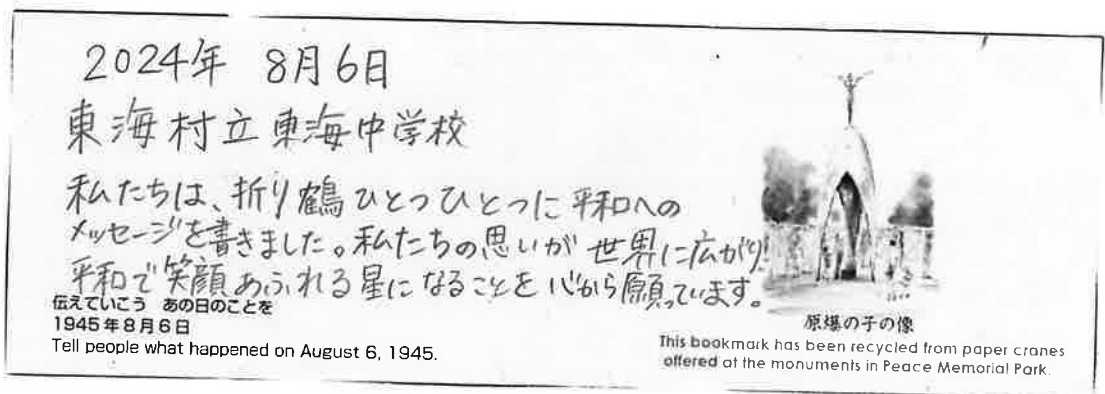 2024年 8月6日
東海村立東海中学校
私たちは、折り鶴ひとつひとつに平和への
メッセージを書きました。私たちの思いが世界に広がり、
平和で笑顔あふれる星になることを心から願っています。
伝えていこう あの日のことを
1945年8月6日
Tell people what happened on August 6, 1945.
原爆の子の像
This bookmark has been recycled from paper cranes
offered at the monuments in Peace Memorial Park.